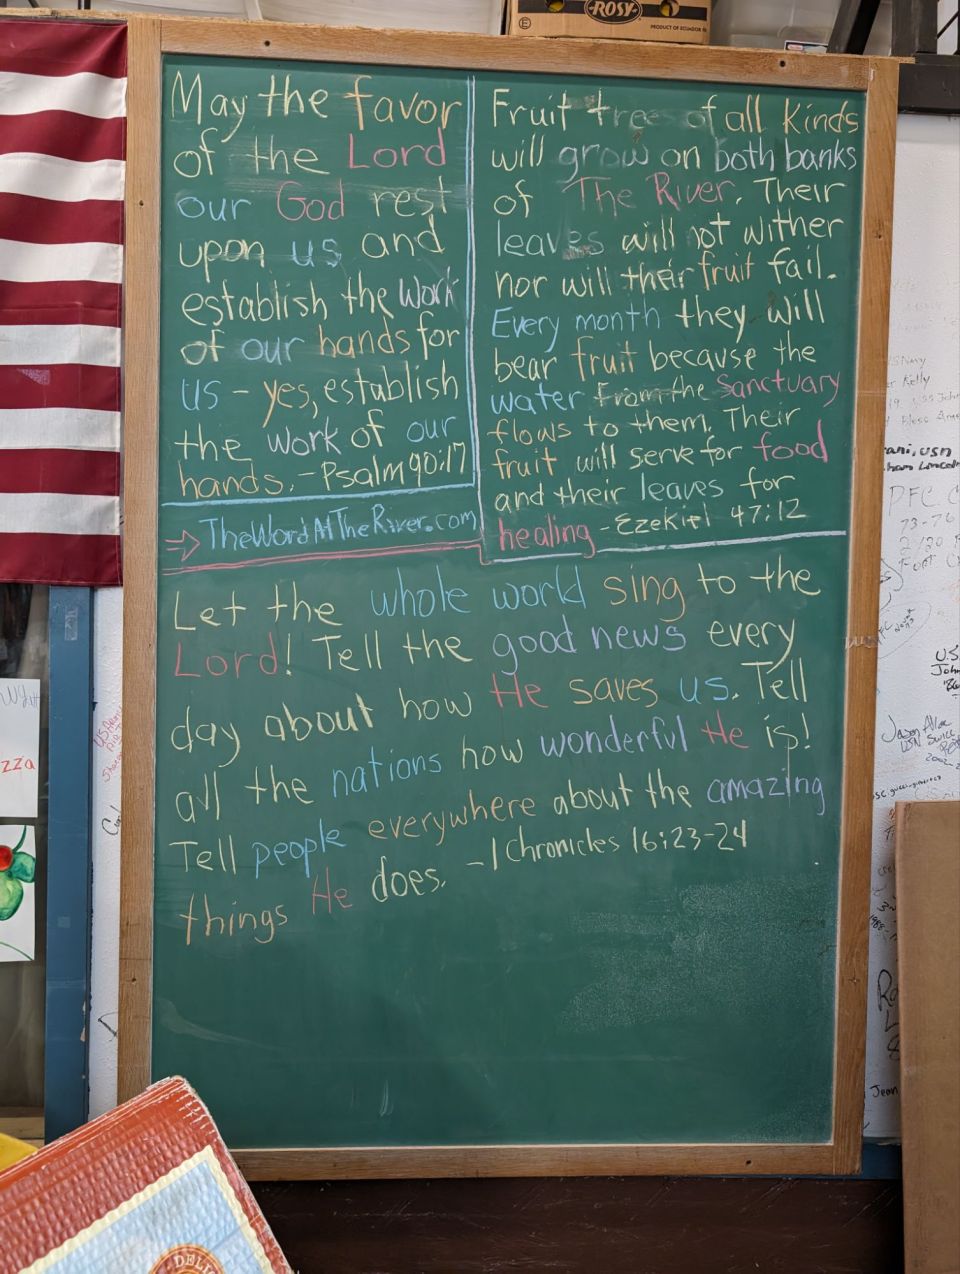 ROSY
PRODUCT OF ECUADOR
May the favor
of the Lord
our God rest
upon us and
establish the work
of our hands for
us - yes, establish
the work of our
hands. - Psalm 90:17
TheWordAtTheRiver.com
Fruit trees of all kinds
will grow on both banks
of The River. Their
leaves will not wither
nor will their fruit fail.
Every month they will
bear fruit because the
water from the Sanctuary
flows to them. Their
fruit will serve for food
and their leaves for
healing - Ezekiel 47:12
Let the whole world sing to the
Lord! Tell the good news every
day about how He saves us. Tell
all the nations how wonderful He is!
Tell people everywhere about the amazing
things He does. - 1 Chronicles 16:23-24
Kelly
PFC
73-76
Jason
Jean
zza
DELI